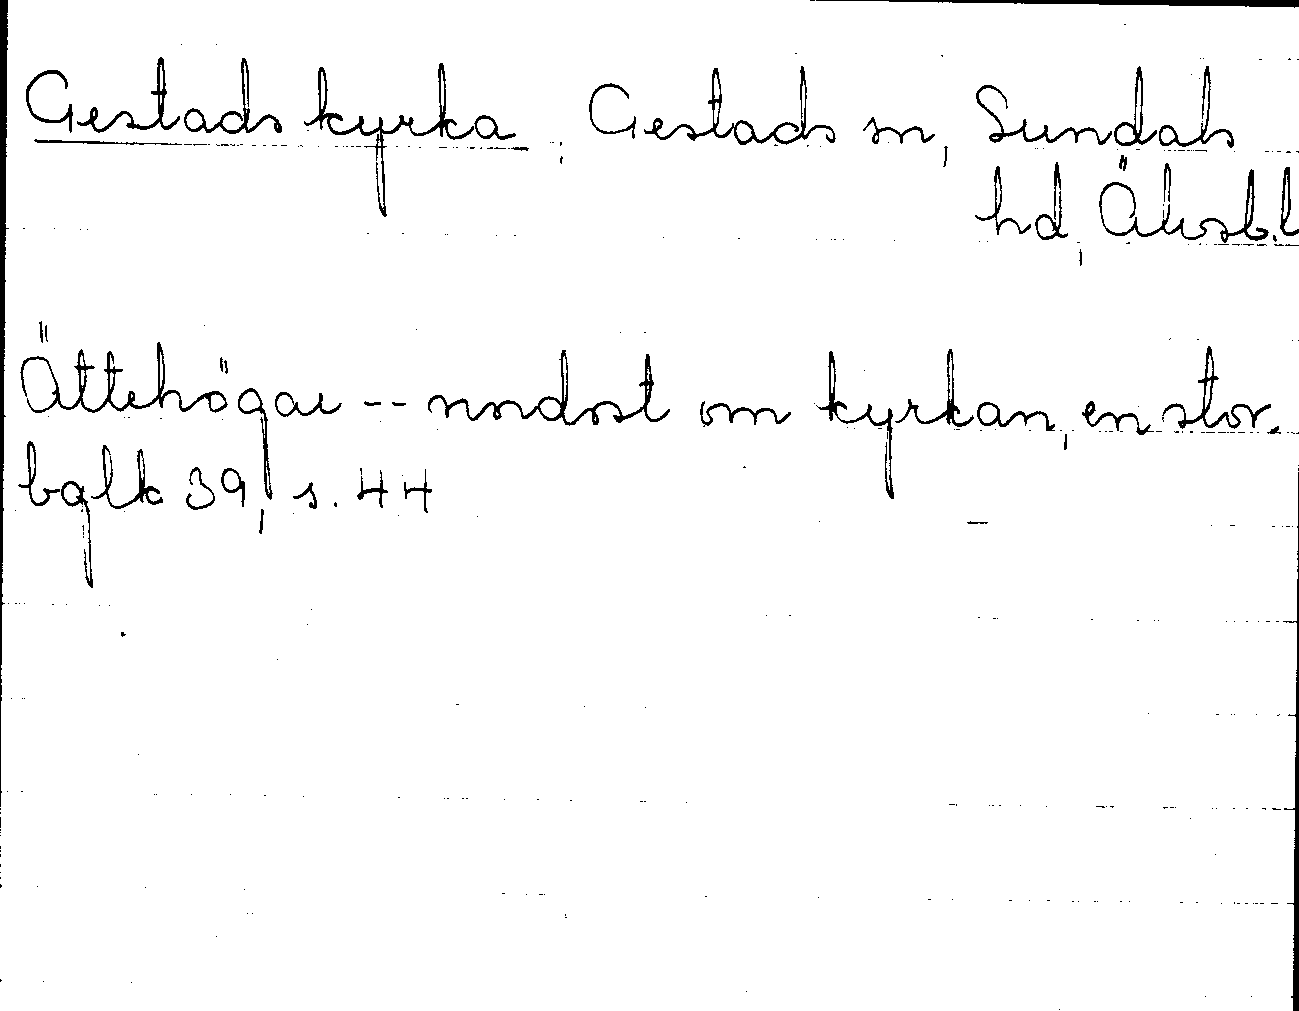 Gestads kyrka, Gestads sn, Sundals
hd, Älvsb.l
Ättehögar -- nordost om kyrkan, en stor.
bglk 39, s. 44